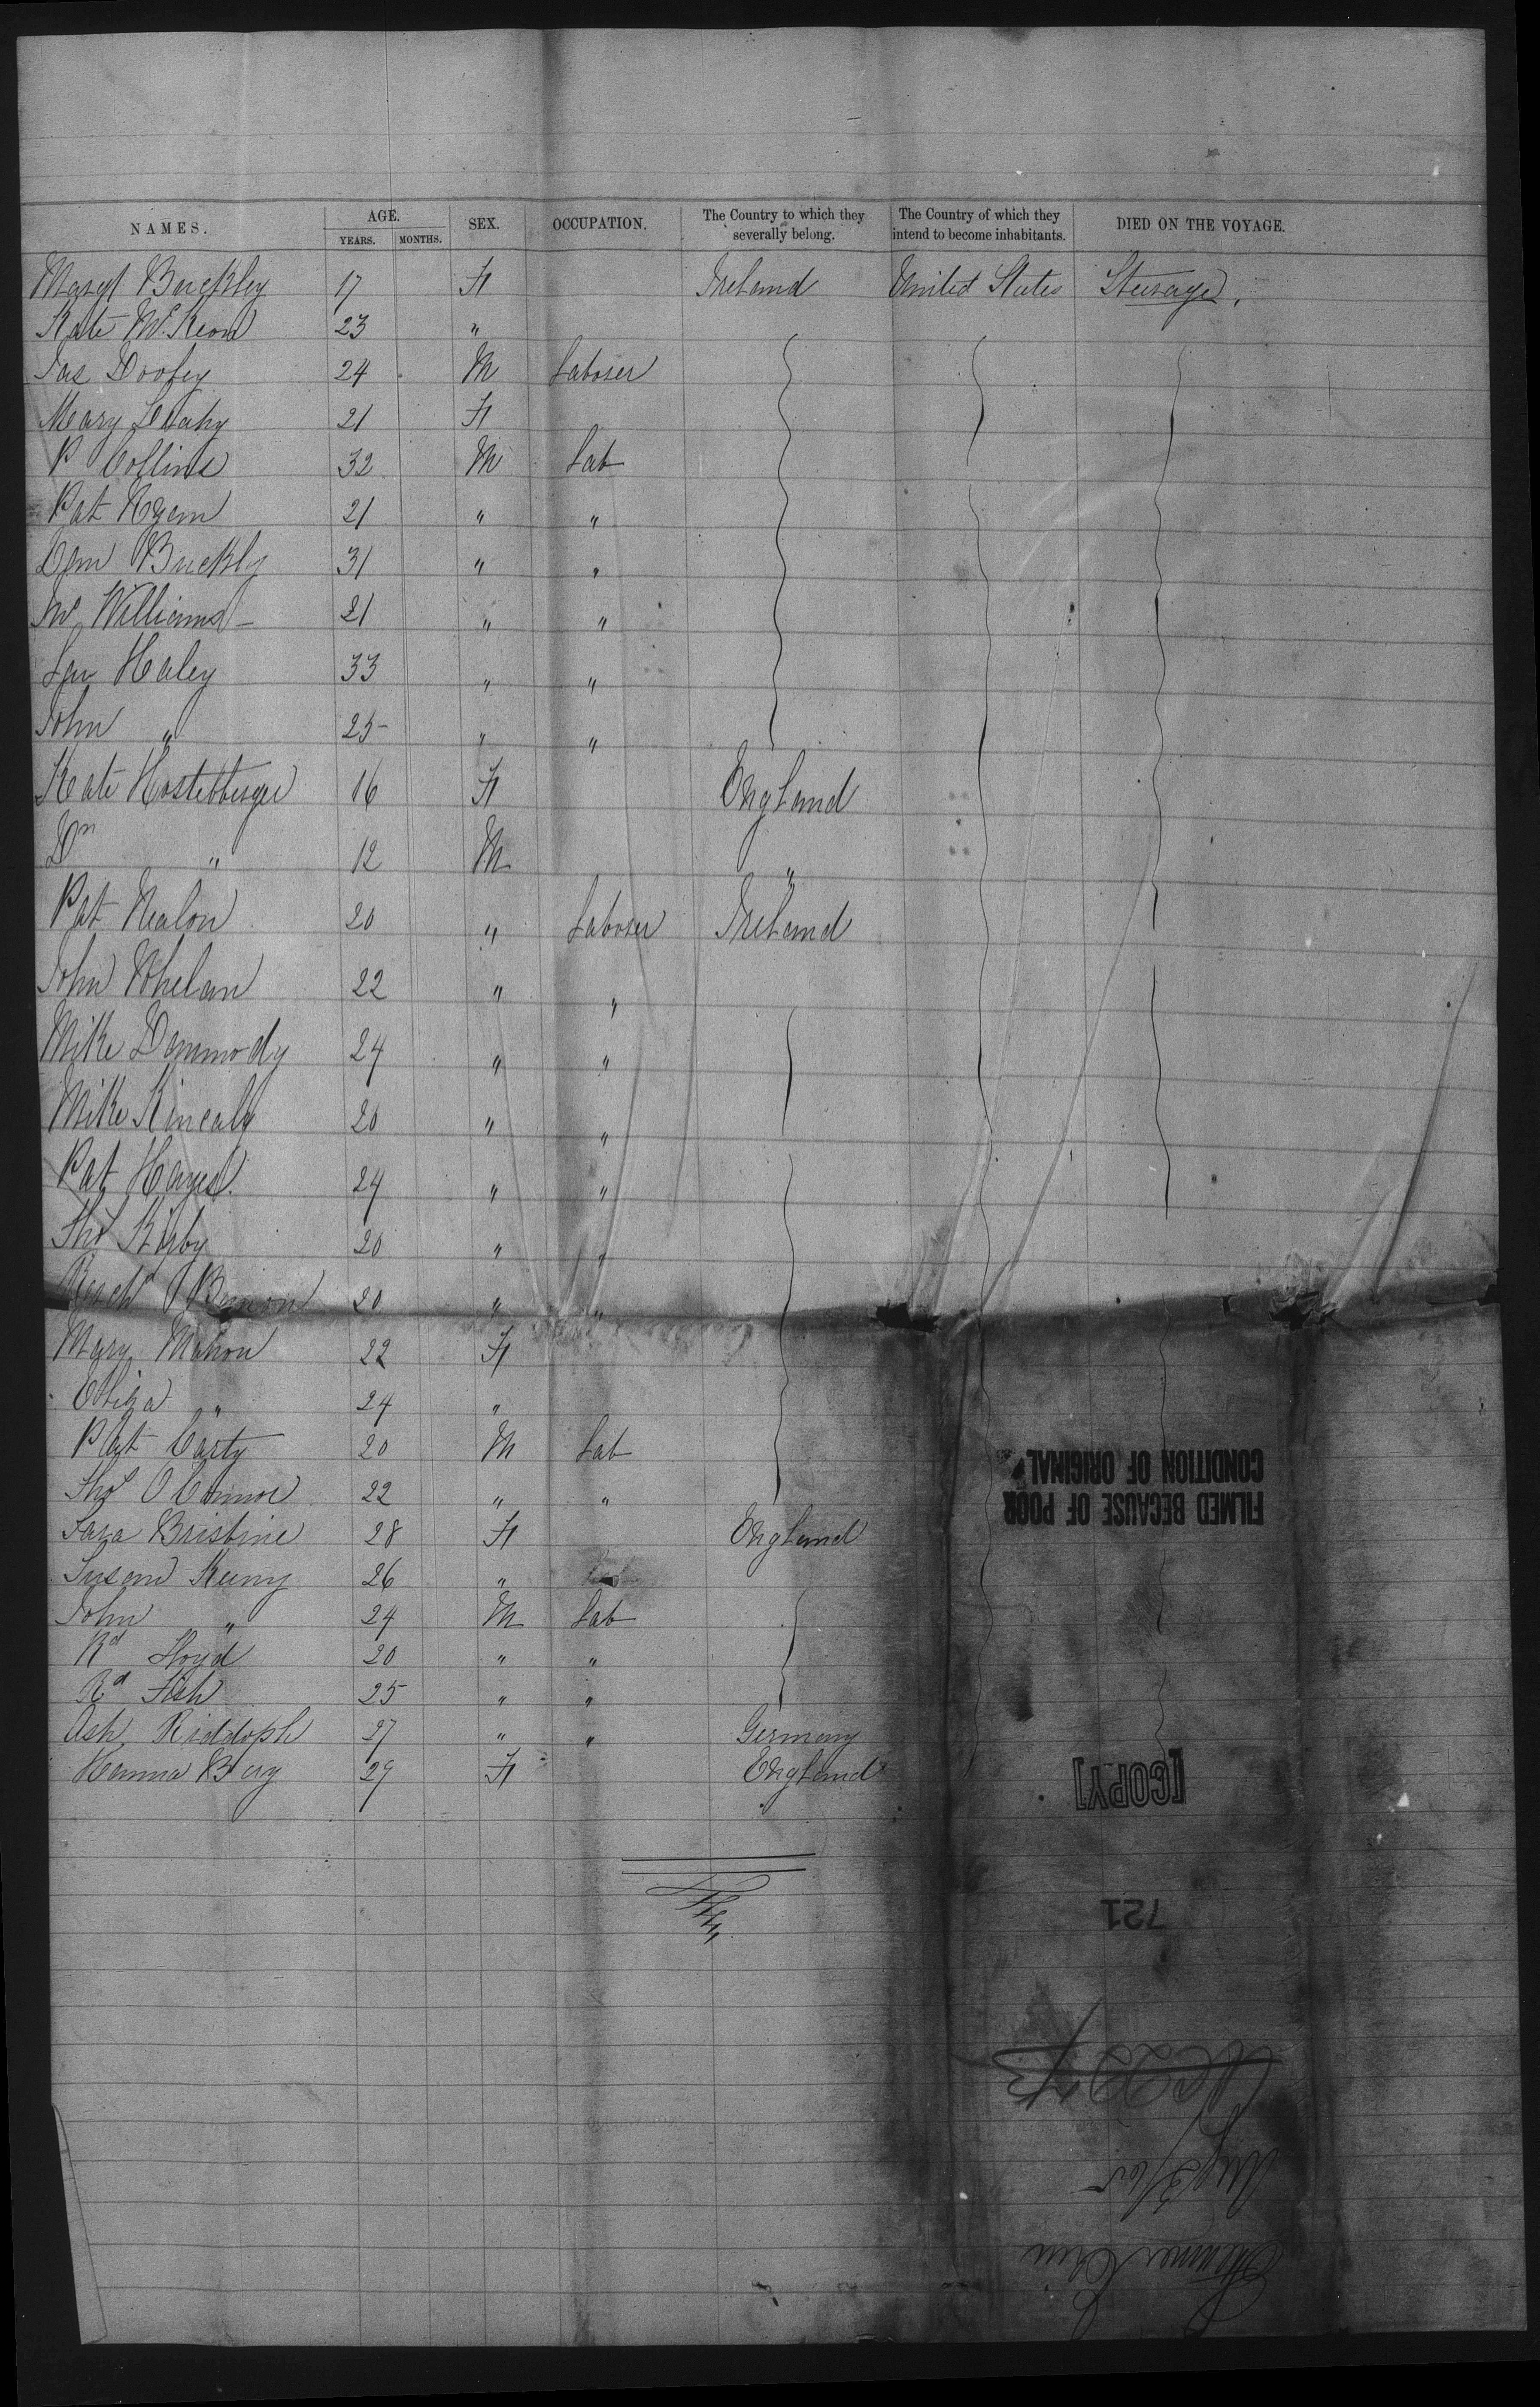 NAMES. AGE. YEARS. MONTHS. SEX. OCCUPATION. The Country to which they severally belong. The Country of which they intend to become inhabitants. DIED ON THE VOYAGE.
Buckley 17 F Ireland United States Steerage.
Kate McKeon 23 "
Jas Doofey 24 M Laborer
Mary Leahy 21 F
P Collins 32 M Lab
Pat Ryan 21 " "
Buckly 31 " "
Williams 21 " "
Haley 33 " "
John " 25 " "
Kate 16 F England
" 12 M "
Pat Nealon 20 " Laborer Ireland
John Phelan 22 " "
Mike Dammody 24 " "
Mike Kinealy 20 " "
Pat Hayes 24 " "
Thos Kirby 20 " "
20 " "
Mary Mahon 22 F
Eliza " 24 "
Pat Carty 20 M Lab
Thos O Connor 22 " "
Sara Bristine 28 F England
Susan Keeny 26 "
John " 24 M Lab
Rd Floyd 20 " "
Rd Fish 25 " "
Ash. Riddoph 27 " " Germany
Hanna Berg 29 F England
FILMED BECAUSE OF POOR
CONDITION OF ORIGINAL
[COPY]
721
Steamer Erin